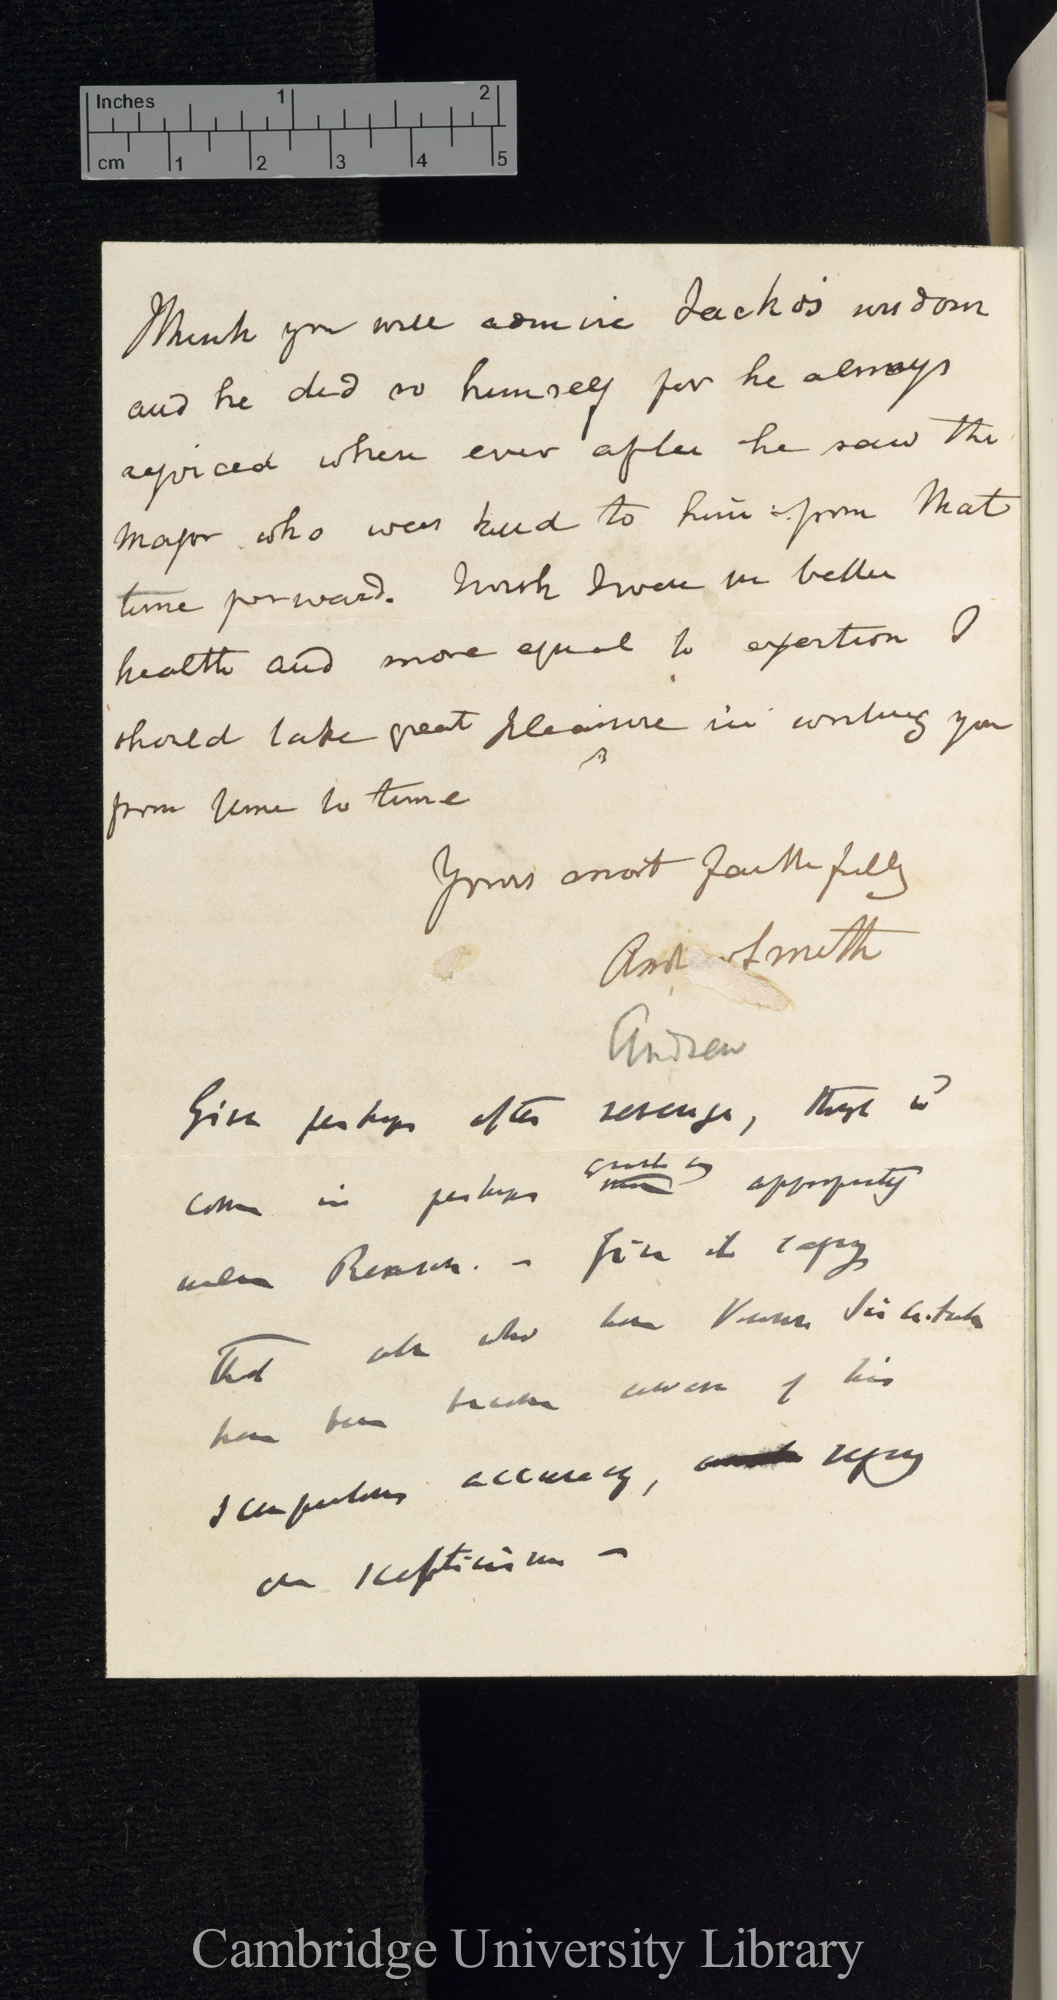 Inches 1 2
cm 1 2 3 4 5
Think you will admire Jacko's wisdom
and he did so himself for he always
rejoiced when ever after he saw the
Major who was kind to him from that
time forward. I wish I were in better
health and more equal to exertion I
should take great pleasure in writing you
from time to time
Yours most faithfully
And Smith
Andrew
Give perhaps after revenge, though it
come in perhaps appropriately
under Reason. — Give it saying
that all who have known Sir A. Smith
have been become aware of his
scrupulous accuracy,
on scepticism —
Cambridge University Library